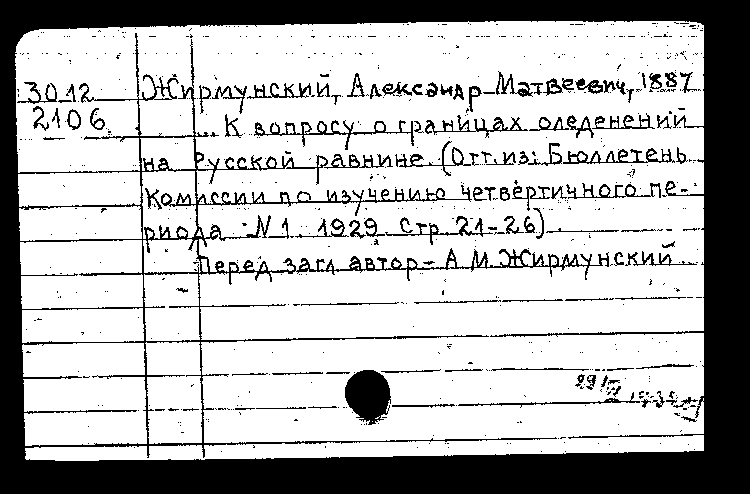 30.12
2106
Жирмунский, Александр Матвеевич, 1887
... К вопросу о границах оледенений
на Русской равнине. (Отт. из: Бюллетень
Комиссии по изучению четвертичного пе-
риода N 1. 1929. Стр. 21-26).
Перед загл. автор - А.М. Жирмунский.
29/